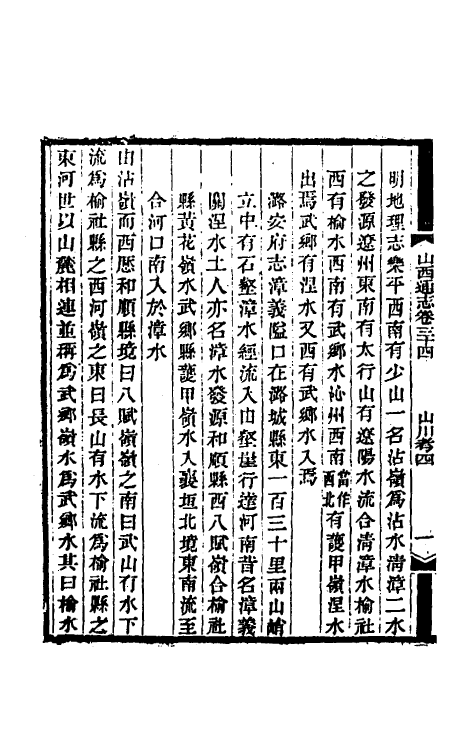 山西通志卷三十四　山川考四　一
明地理志樂平西南有少山一名沾嶺爲沾水清漳二水
之發源遼州東南有太行山有遼陽水流合清漳水榆社
西有榆水西南有武鄉水沁州西南當作西北有護甲嶺涅水
出焉武鄉有涅水又西有武鄉水入焉
潞安府志漳義隘口在潞城縣東一百三十里兩山峭
立中有石壑漳水經流入由壑崖行達河南昔名漳義
關涅水土人亦名漳水發源和順縣西八賦嶺合榆社
縣黃花嶺水武鄉縣護甲嶺水入襄垣北境東南流至
合河口南入於漳水
由沾嶺而西歷和順縣境曰八賦嶺嶺之南曰武山有水下
流爲榆社縣之西河嶺之東曰長山有水下流爲榆社縣之
東河世以山麓相連並稱爲武鄉嶺水爲武鄉水其曰榆水